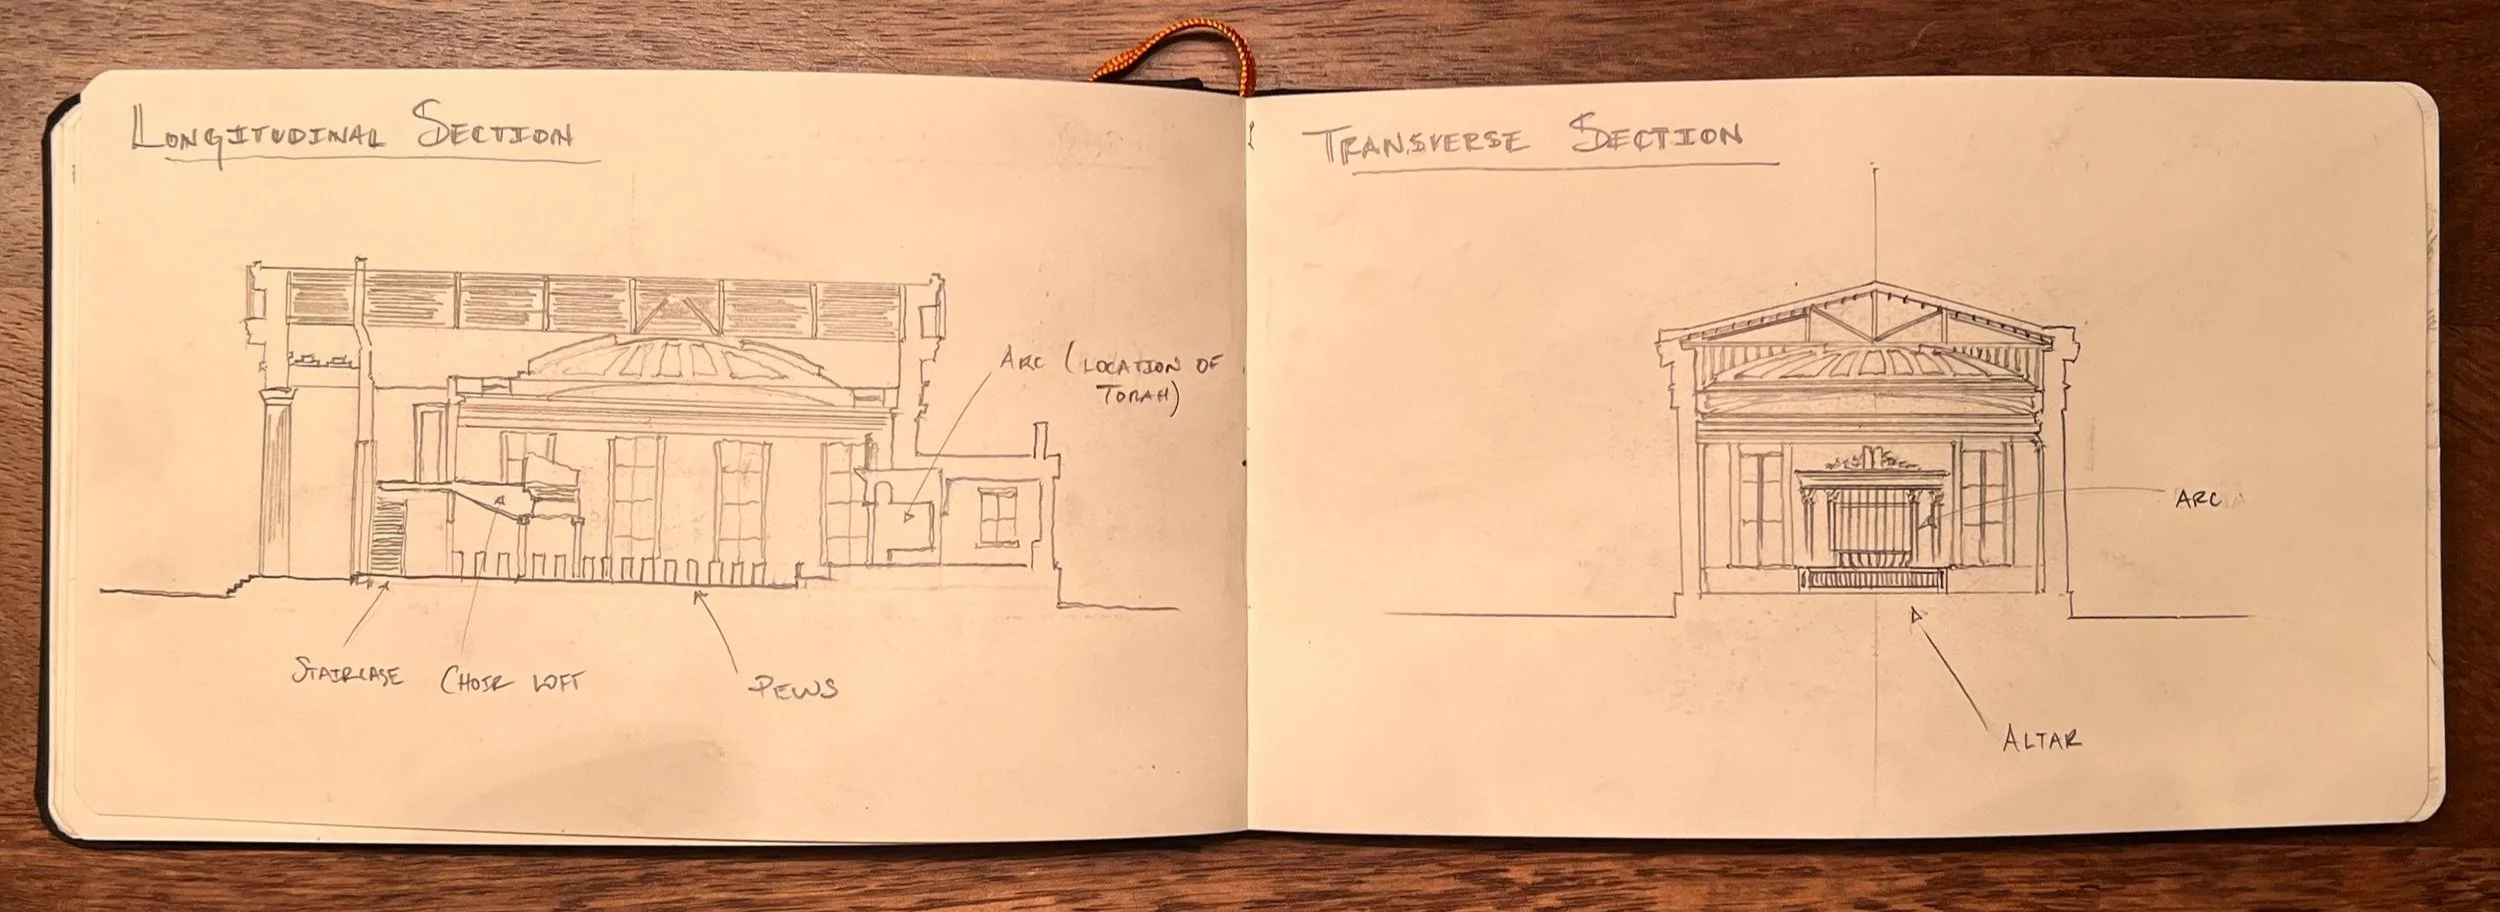 LONGITUDINAL SECTION
ARC (LOCATION OF
TORAH)
STAIRCASE
CHOIR LOFT
PEWS
TRANSVERSE SECTION
ARC
ALTAR